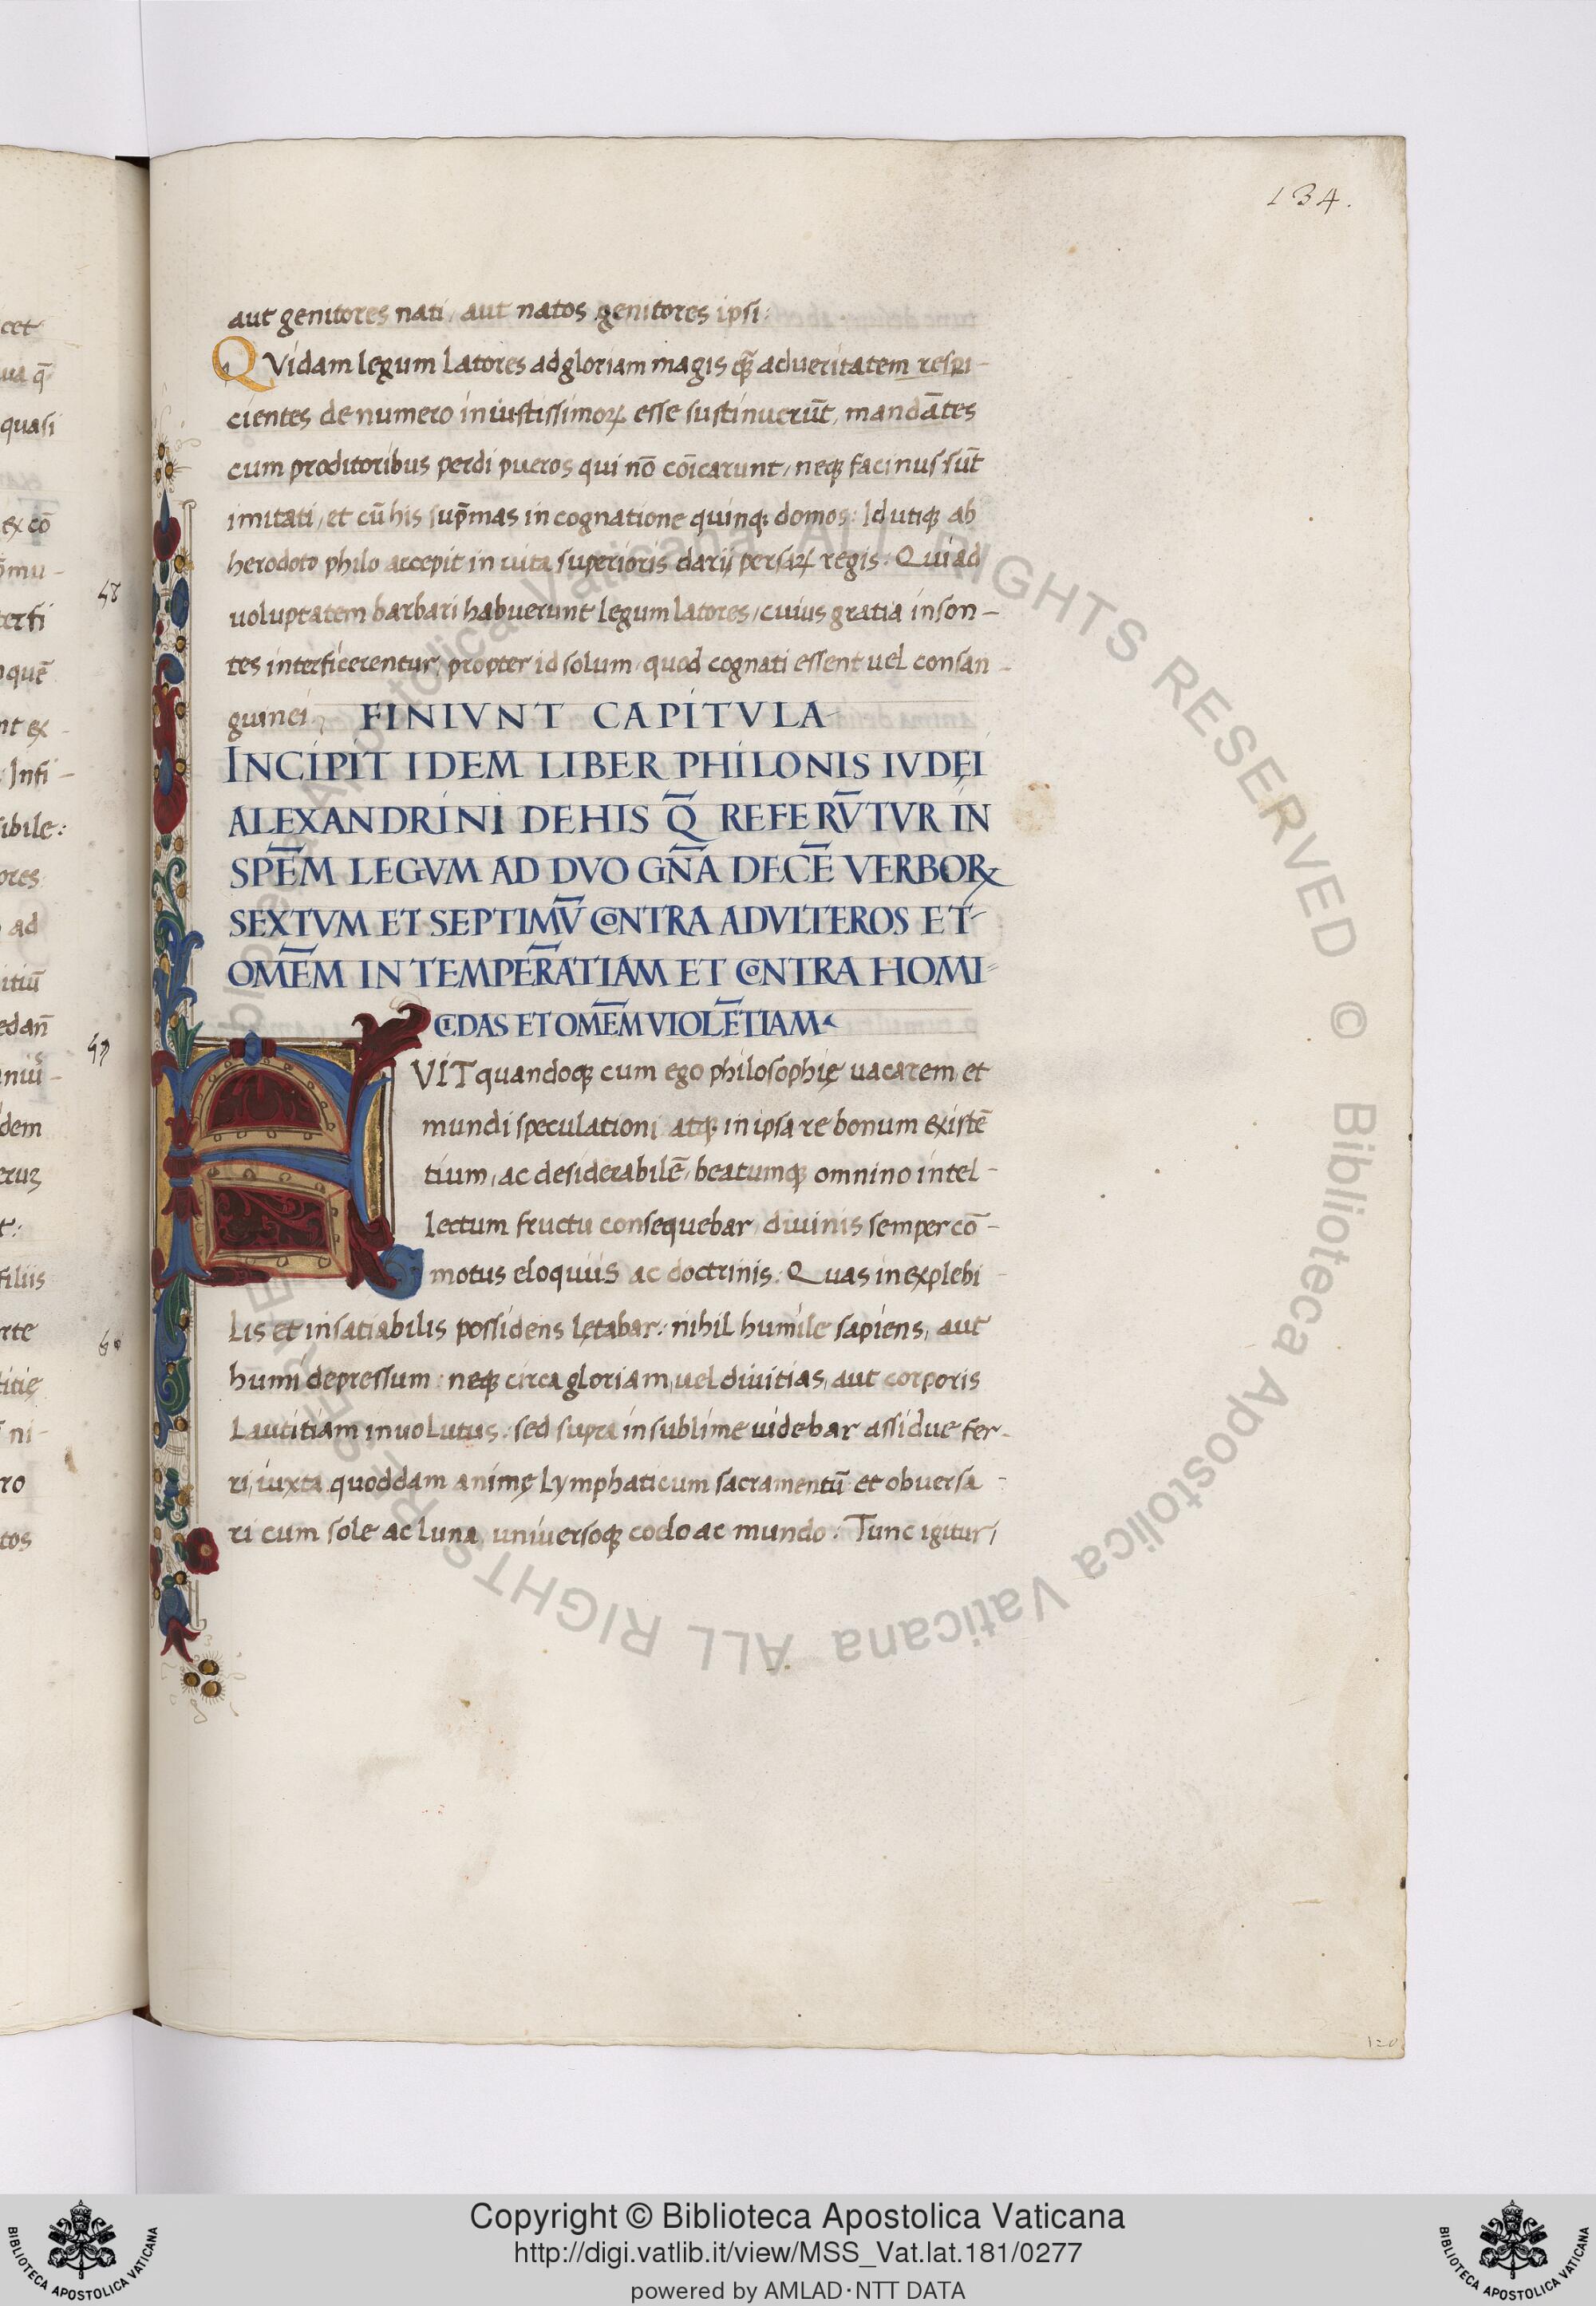 134.
aut genitores nati, aut natos genitores ipsi:
QVidam legum latores ad gloriam magis q̃ȝ ad ueritatem respi-
cientes de numero iniustissimoꝝ esse sustinuerūt, mandātes
cum proditoribus perdi pueros qui nō cōicarunt, neqȝ facinus sūt
imitati, et cū his sup̄mas in cognatione quinqȝ domos: Id utiqȝ ab
herodoto philo accepit in uita superioris darij persaꝝ regis: Qui ad
uoluptatem barbari habuerunt legum latores, cuius gratia inson-
tes interficerentur, propter id solum, quod cognati essent uel consan-
guinei: FINIVNT CAPITVLA
INCIPIT IDEM LIBER PHILONIS IVDĘI
ALEXANDRINI DE HIS Q̄ REFERV̄TVR IN
SPĒM LEGVM AD DVO GÑA DECĒ VERBOꝜ
SEXTVM ET SEPTIMV̄ CONTRA ADVLTEROS ET
OMĒM INTEMPERĀTIAM ET CONTRA HOMI-
CIDAS ET OMĒM VIOLĒTIAM
FVIT quandoqȝ cum ego philosophię uacarem et
mundi speculationi atqȝ in ipsa re bonum existē
tium, ac desiderabilē, beatumqȝ omnino intel-
lectum fructu consequebar, diuinis semper cō-
motus eloquiis ac doctrinis: Quas inexplebi
lis et insatiabilis possidens lętabar: nihil humile sapiens, aut
humi depressum: neqȝ circa gloriam, uel diuitias, aut corporis
lautitiam inuolutus: sed supra in sublime uidebar assidue fer-
ri, iuxta quoddam animę lymphaticum sacramentū et obuersa-
ri cum sole ac luna, uniuersoqȝ coelo ac mundo: Tunc igitur,
58
59
60
120
Biblioteca Apostolica Vaticana ALL RIGHTS RESERVED ©
Biblioteca Apostolica Vaticana ALL RIGHTS RESERVED ©
Copyright © Biblioteca Apostolica Vaticana
http://digi.vatlib.it/view/MSS_Vat.lat.181/0277
powered by AMLAD·NTT DATA
BIBLIOTECA APOSTOLICA VATICANA
BIBLIOTECA APOSTOLICA VATICANA